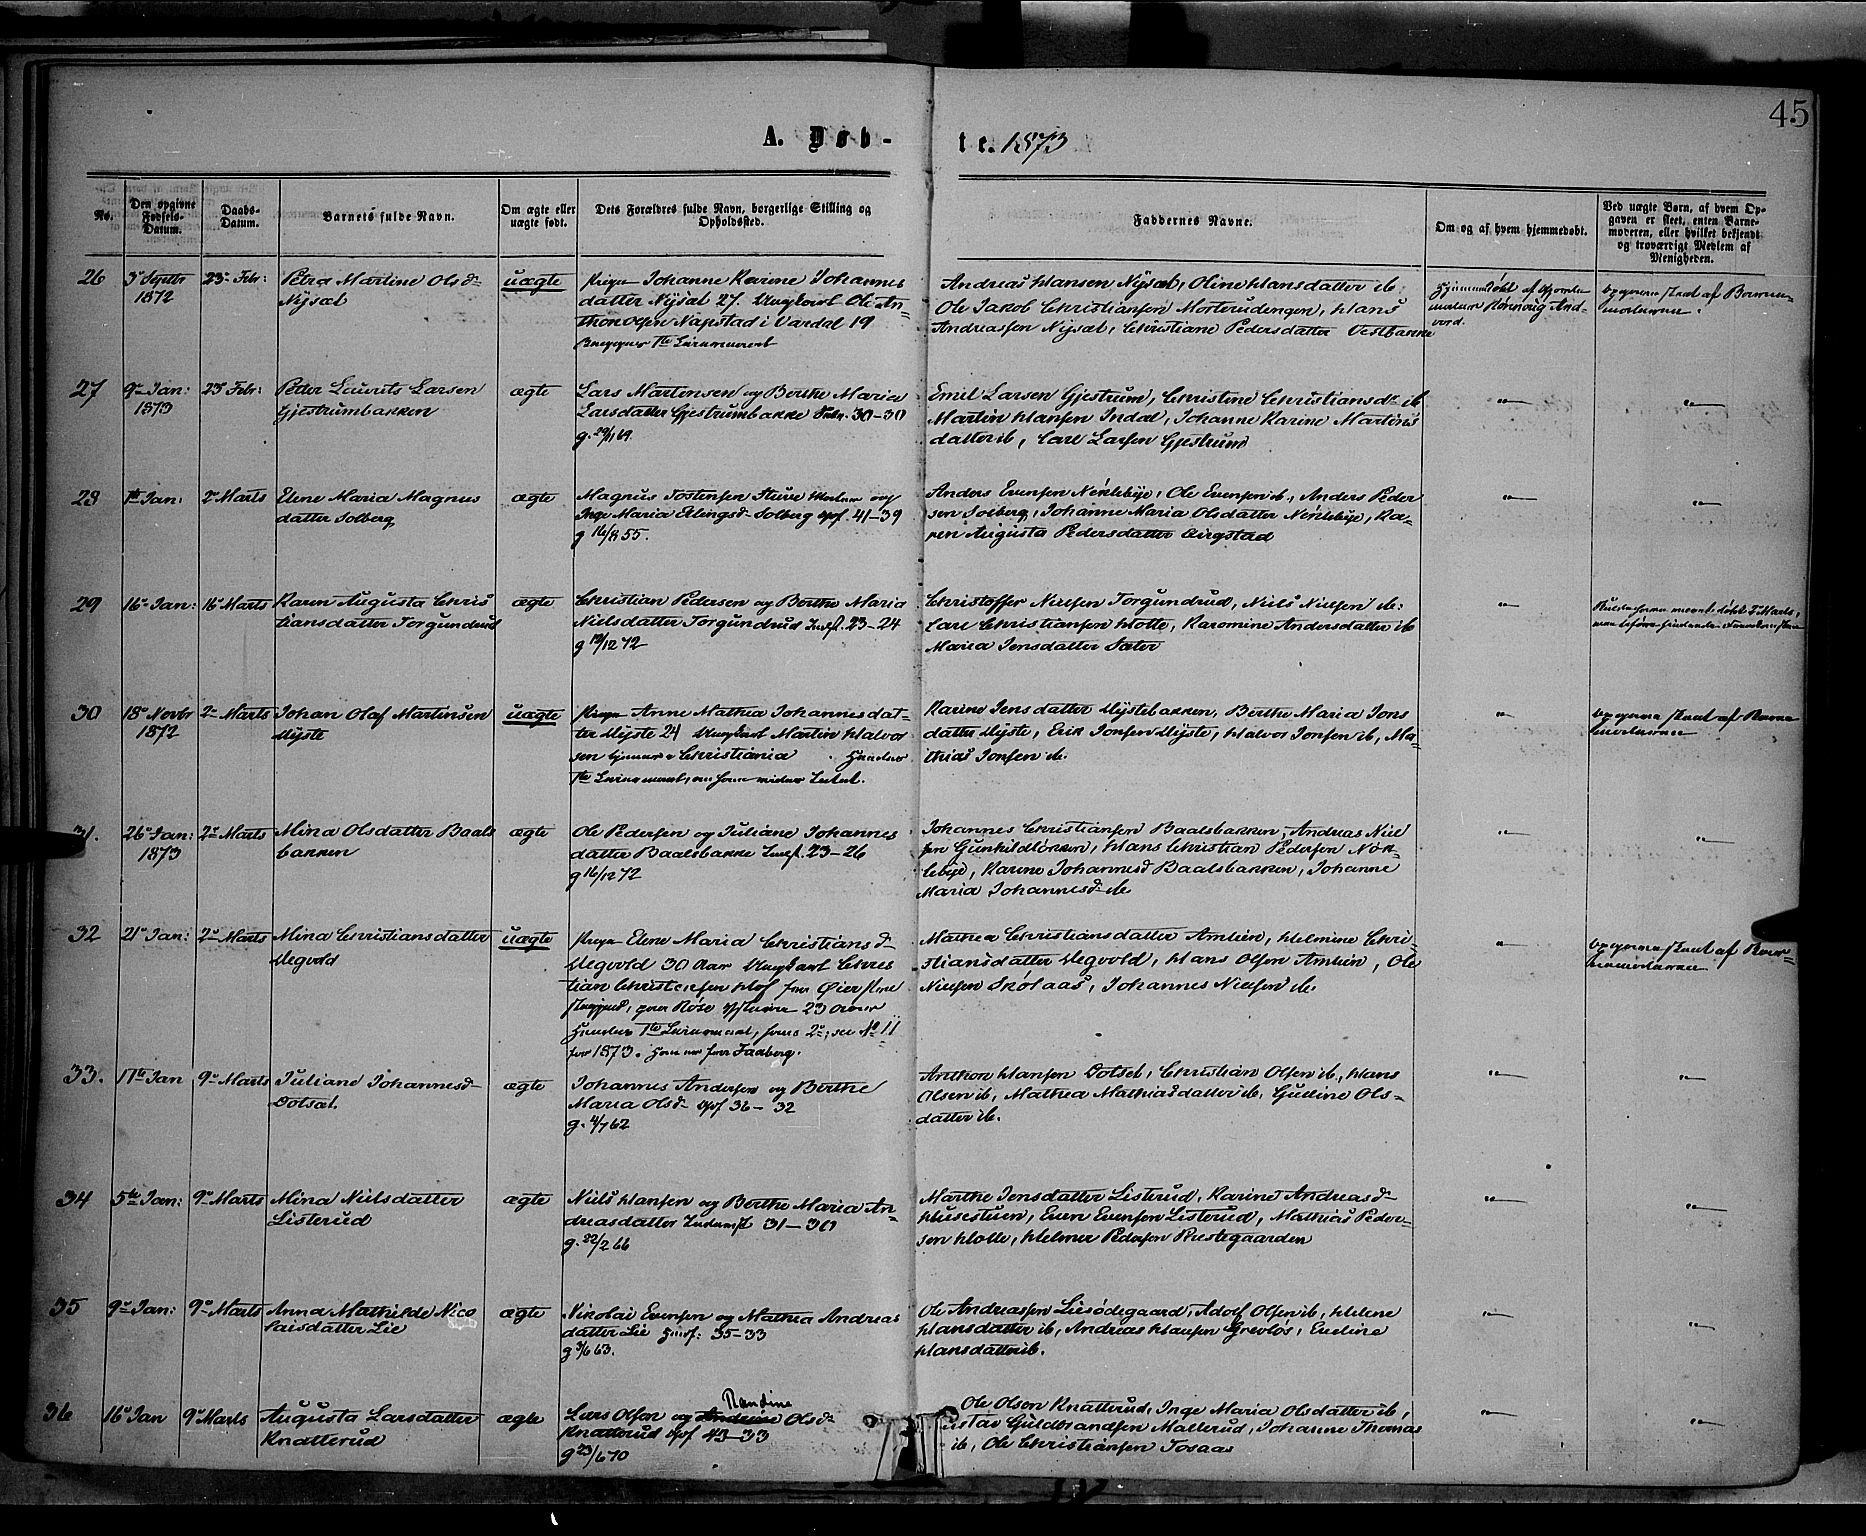 45
A. Døb-
te. 1873
No.
Den opgivne Fødsels-Datum.
Daabs-Datum.
Barnets fulde Navn.
Om ægte eller uægte født.
Dets Forældres fulde Navn, borgerlige Stilling og Opholdssted.
Faddernes Navne.
Om og af hvem hjemmedøbt.
Ved uægte Børn, af hvem Opgaven er skeet, enten Barnemoderen, eller hvilket bekjendt og troværdigt Medlem af Menigheden.
26 3 Septbr 1872 23 Febr: Petra Martine Olsd. Nysæt uægte
Pigen Johanne Karine Johannes
datter Nysæt 27. Ungkarl Ole An-
thon Olsen Napstad i Vardal 19
Begges 1ste Leiermaal
Andreas Hansen Nysæt, Oline Hansdatter ib
Ole Jakob Christiansen Morterudengen, Hans
Andreassen Nysæt, Christiane Pedersdatter Vestbakke
Hjemmedøbt af
opgivne skeet af Barne-
moderen.
27 9 Jan: 1873 23 Febr: Peder Laurits Larsen Gjestrumbakken ægte
Lars Martensen og Berthe Maria
Larsdatter Gjestrumbakke 30-30
g. 29/1 69.
Emil Larsen Gjestrum, Christine Christiansdr ib
Martin Hansen Indal, Johanne Karine Martins
datter ib, Carl Larsen Gjestrum
28 1ste Jan: 2 Marts Elene Maria Magnus
datter Solberg ægte
Magnus Tostensen og
Inge Maria Ellingsd. Solberg 41-39
g 16/8 55.
Anders Evensen Nøklebye, Ole Evensen ib, Anders Peder
sen Solberg, Johanne Maria Olsdatter Nøklebye, Ka-
ren Augusta Pedersdatter
29 16 Jan: 16 Marts Karen Augusta Chris
tiansdatter Torgundrud ægte
Christian Pedersen og Berthe Maria
Nielsdatter Torgundrud Indst. 23-24
g 19/12 72
Christoffer Nielsen Torgundrud, Niels Nielsen ib:
Carl Christiansen Hotte, Karomine Andersdatter ib
Maria Jensdatter Sæter
30 18 Novbr 1872 2 Marts Johan Olaf Martinsen
Myste uægte
Pigen Anne Mathea Johannesdat-
ter Myste 24 Ungkarl Martin Halvor
sen Christiania
Karine Jensdatter Mystebakken, Berthe Maria Jons
datter Myste, Erik Jonsen Myste, Halvor Jonsen ib, Ma-
thias Jonsen ib.
opgivne skeet af Barne
moderen
31. 26 Jan: 1873 2 Marts Mina Olsdatter Baals
bakken ægte
Ole Pedersen og Juliane Johannes
datter Baalsbakke Indst. 23-26
g 16/12 72
Johannes Christiansen Baalsbakken, Andreas Niel
sen Gunhildløkken, Hans Christian Pedersen Nøk-
lebye, Karine Johannesd. Baalsbakken, Johanne
Maria Johannesd. ib
32 21 Jan: 2 Marts Mina Christiansdatter
Megvold uægte
Pigen Elene Maria Christiansd.
Megvold 30 Aar Ungkarl Chris
tian Christensen Hof fra Øier
23 Aar
Hendes 1ste Leiermaal, hans 2, see No 11
for 1873. Han er fra Faaberg.
Mathea Christiansdatter Amlien, Helmine Chri-
stiansdatter Megvold, Hans Olsen Amlien, Ole
Nielsen Skolaas, Johannes Nielsen ib.
opgivne skeet af Bar-
nemoderen
33. 17de Jan 9 Marts Juliane Johannesd.
Dotset ægte
Johannes Andersen og Berthe
Maria Olsd. 36-32
g. 4/7 62
Anthon Hansen Dotset, Christian Olsen ib, Hans
Olsen ib, Mathea Mathiasdatter ib, Gudine Ols-
datter ib.
34 5te Jan: 9 Marts Mina Nielsdatter
Listerud ægte
Niels Hansen og Berthe Maria An-
dreasdatter 31-30
g. 22/2 66
Marthe Jensdatter Listerud, Karine Andreasd.
Husestuen, Even Evensen Listerud, Mathias Peder-
sen Hotte, Helmer Pedersen Prestegaarden
35 9 Jan: 9 Marts Anna Mathilde Nico
laisdatter Lie ægte
Nikolai Evensen og Mathea Andreas
datter Lie 35-33
g 3/6 63.
Ole Andreassen Liesødegaard, Adolf Olsen ib, Helene
Hansdatter ib, Andreas Hansen Grevlos, Eudine
Hansdatter ib.
36 16 Jan 9 Marts Augusta Larsdatter
Knatterud ægte
Randine
Lars Olsen og Olsd.
Knatterud 43-33
g 23/6 70
Ole Olsen Knatterud, Inge Maria Olsdatter ib,
Guldbrandsen Mallerud, Johanne Thomas
ib, Ole Christiansen Tosaas